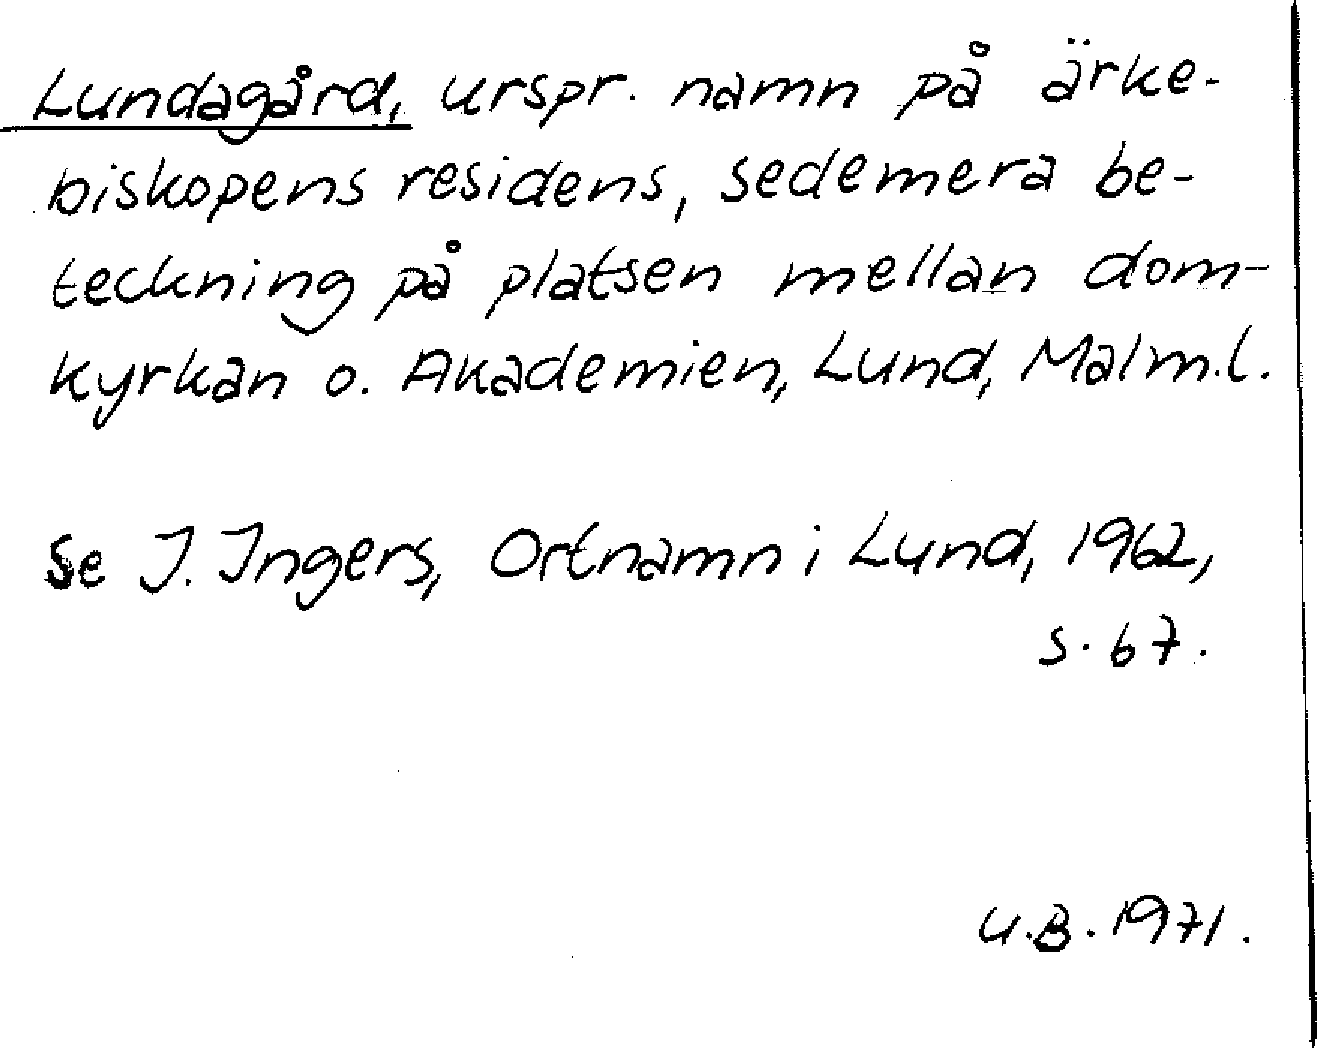 Lundagård, urspr. namn på ärke-
biskopens residens, sedemera be-
teckning på platsen mellan dom-
kyrkan o. Akademien, Lund, Malm.l.
Se I. Ingers, Ortnamn i Lund, 1962,
s. 67.
U.B. 1971.